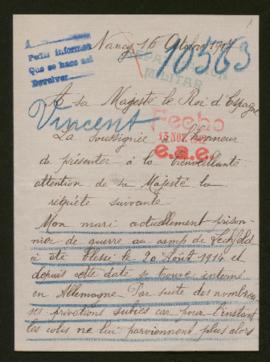 1
Pedir informes
Que se haga así
Devolver
Nancy 16 1917
10563
MILITAR
A sa Majesté le Roi d'Espagne
Vincent
Fecho
15 NOV.
e.a.e.
La soussignée a l'honneur
de présenter à la bienveillante
attention de sa Majesté la
requête suivante.
Mon mari actuellement prison-
nier de guerre au camp de Lechfeld
a été blessé le 20 Août 1914 et
depuis cette date se trouve interné
en Allemagne. Par suite des nombreu
ses privations subies car pour l'instant
les colis ne lui parviennent plus alors